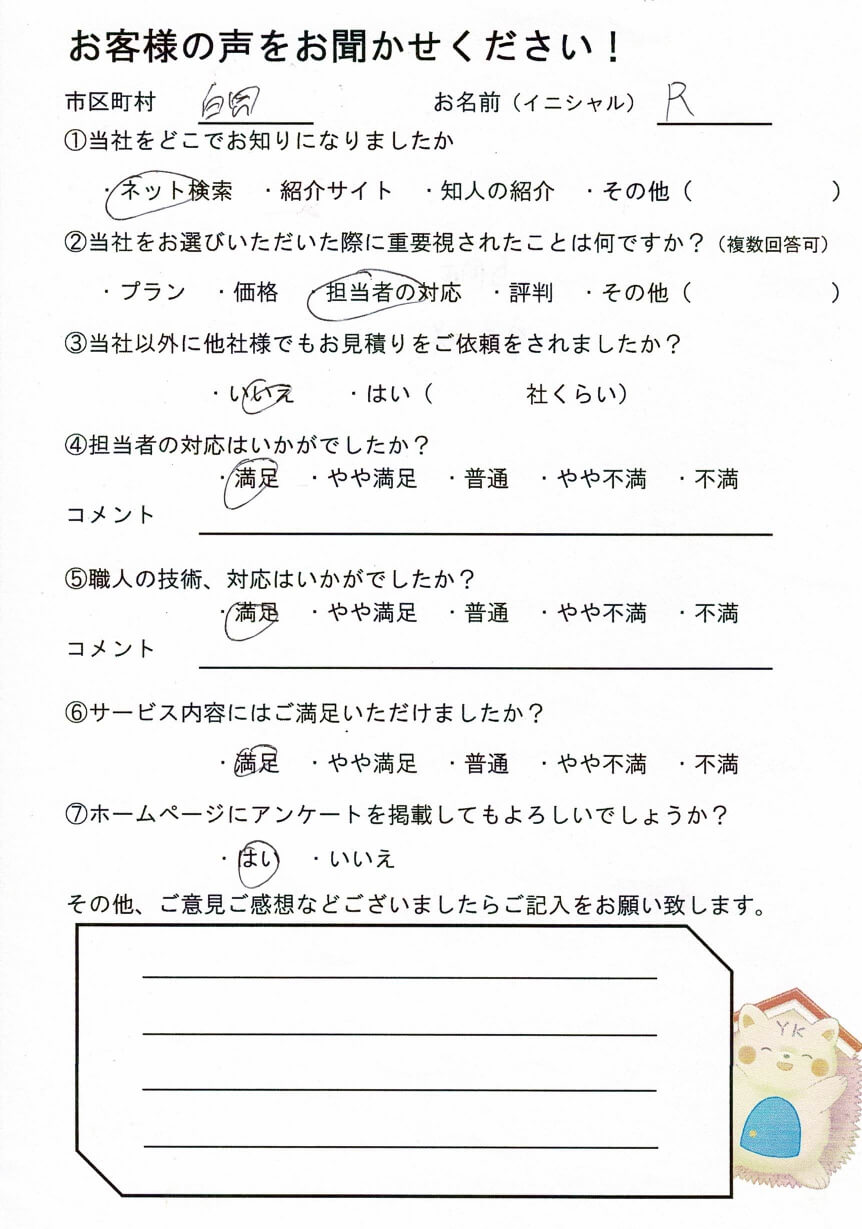 お客様の声をお聞かせください！
市区町村 お名前（イニシャル） R
①当社をどこでお知りになりましたか
・ネット検索 ・紹介サイト ・知人の紹介 ・その他（ ）
②当社をお選びいただいた際に重要視されたことは何ですか？（複数回答可）
・プラン ・価格 ・担当者の対応 ・評判 ・その他（ ）
③当社以外に他社様でもお見積りをご依頼をされましたか？
・いいえ ・はい（ 社くらい）
④担当者の対応はいかがでしたか？
・満足 ・やや満足 ・普通 ・やや不満 ・不満
コメント
⑤職人の技術、対応はいかがでしたか？
・満足 ・やや満足 ・普通 ・やや不満 ・不満
コメント
⑥サービス内容にはご満足いただけましたか？
・満足 ・やや満足 ・普通 ・やや不満 ・不満
⑦ホームページにアンケートを掲載してもよろしいでしょうか？
・はい ・いいえ
その他、ご意見ご感想などございましたらご記入をお願い致します。
YK